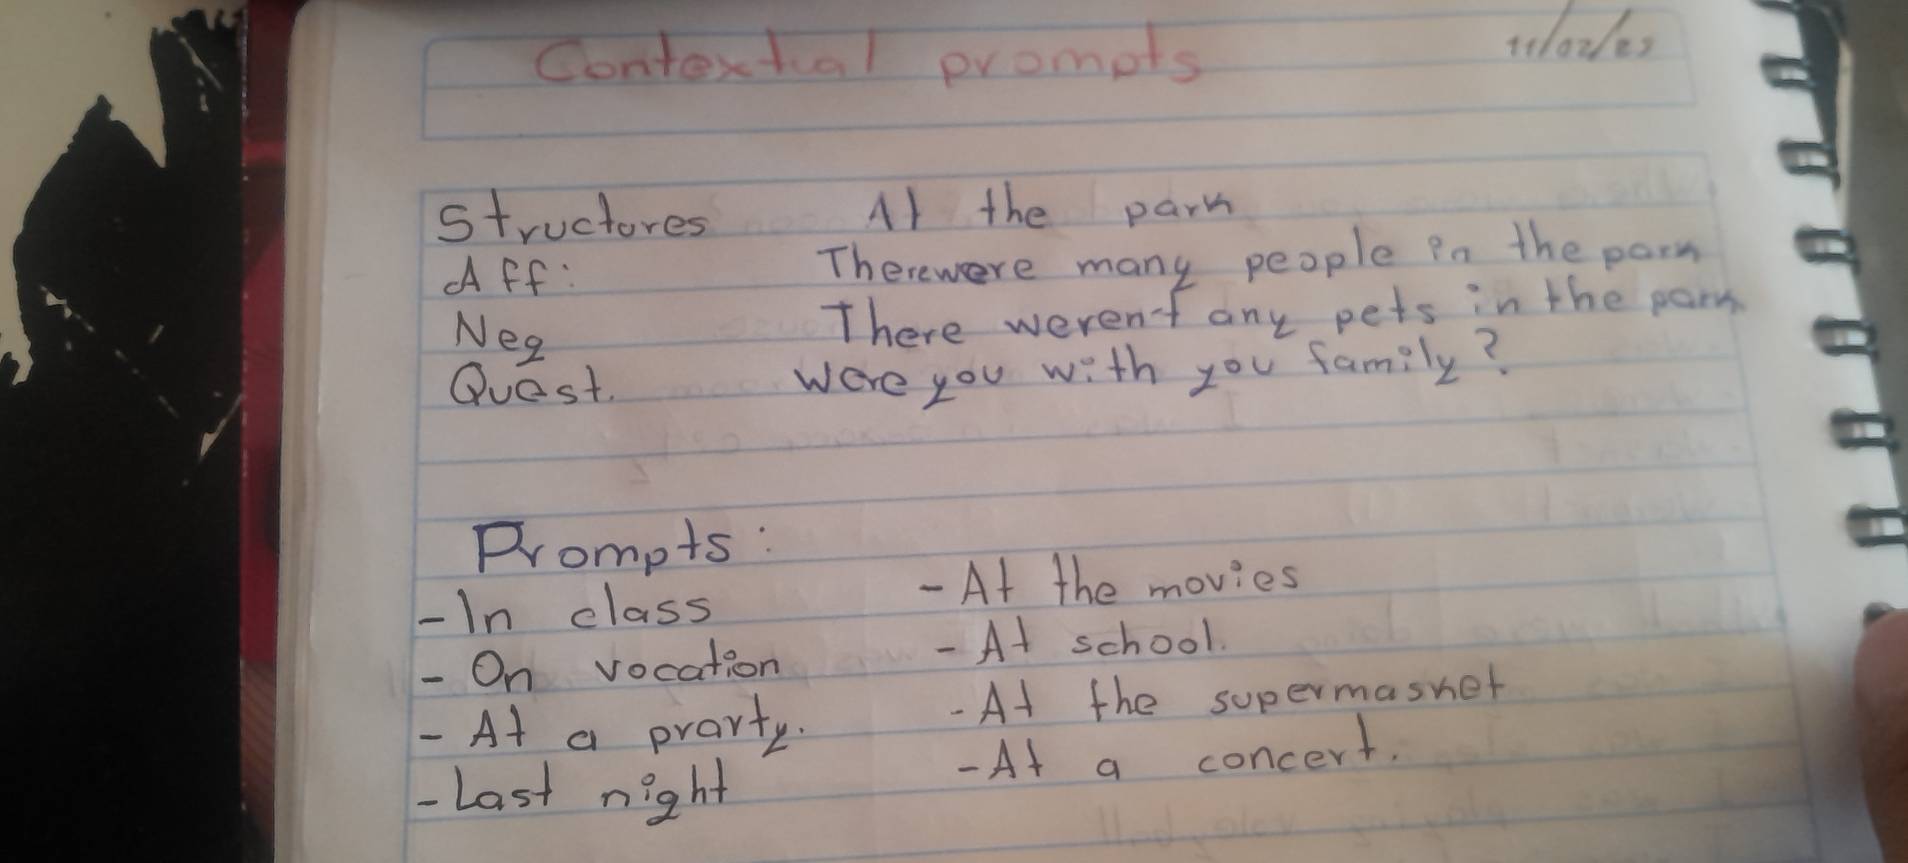 Contextual prompts 11/02/25
Structures At the park
Aff: There were many people in the park
Neg There weren't any pets in the park
Quest. Were you with you family?
Prompts:
-In class -At the movies
- On vocation - At school.
- At a prarty. -At the supermasket
-Last night -At a concert.